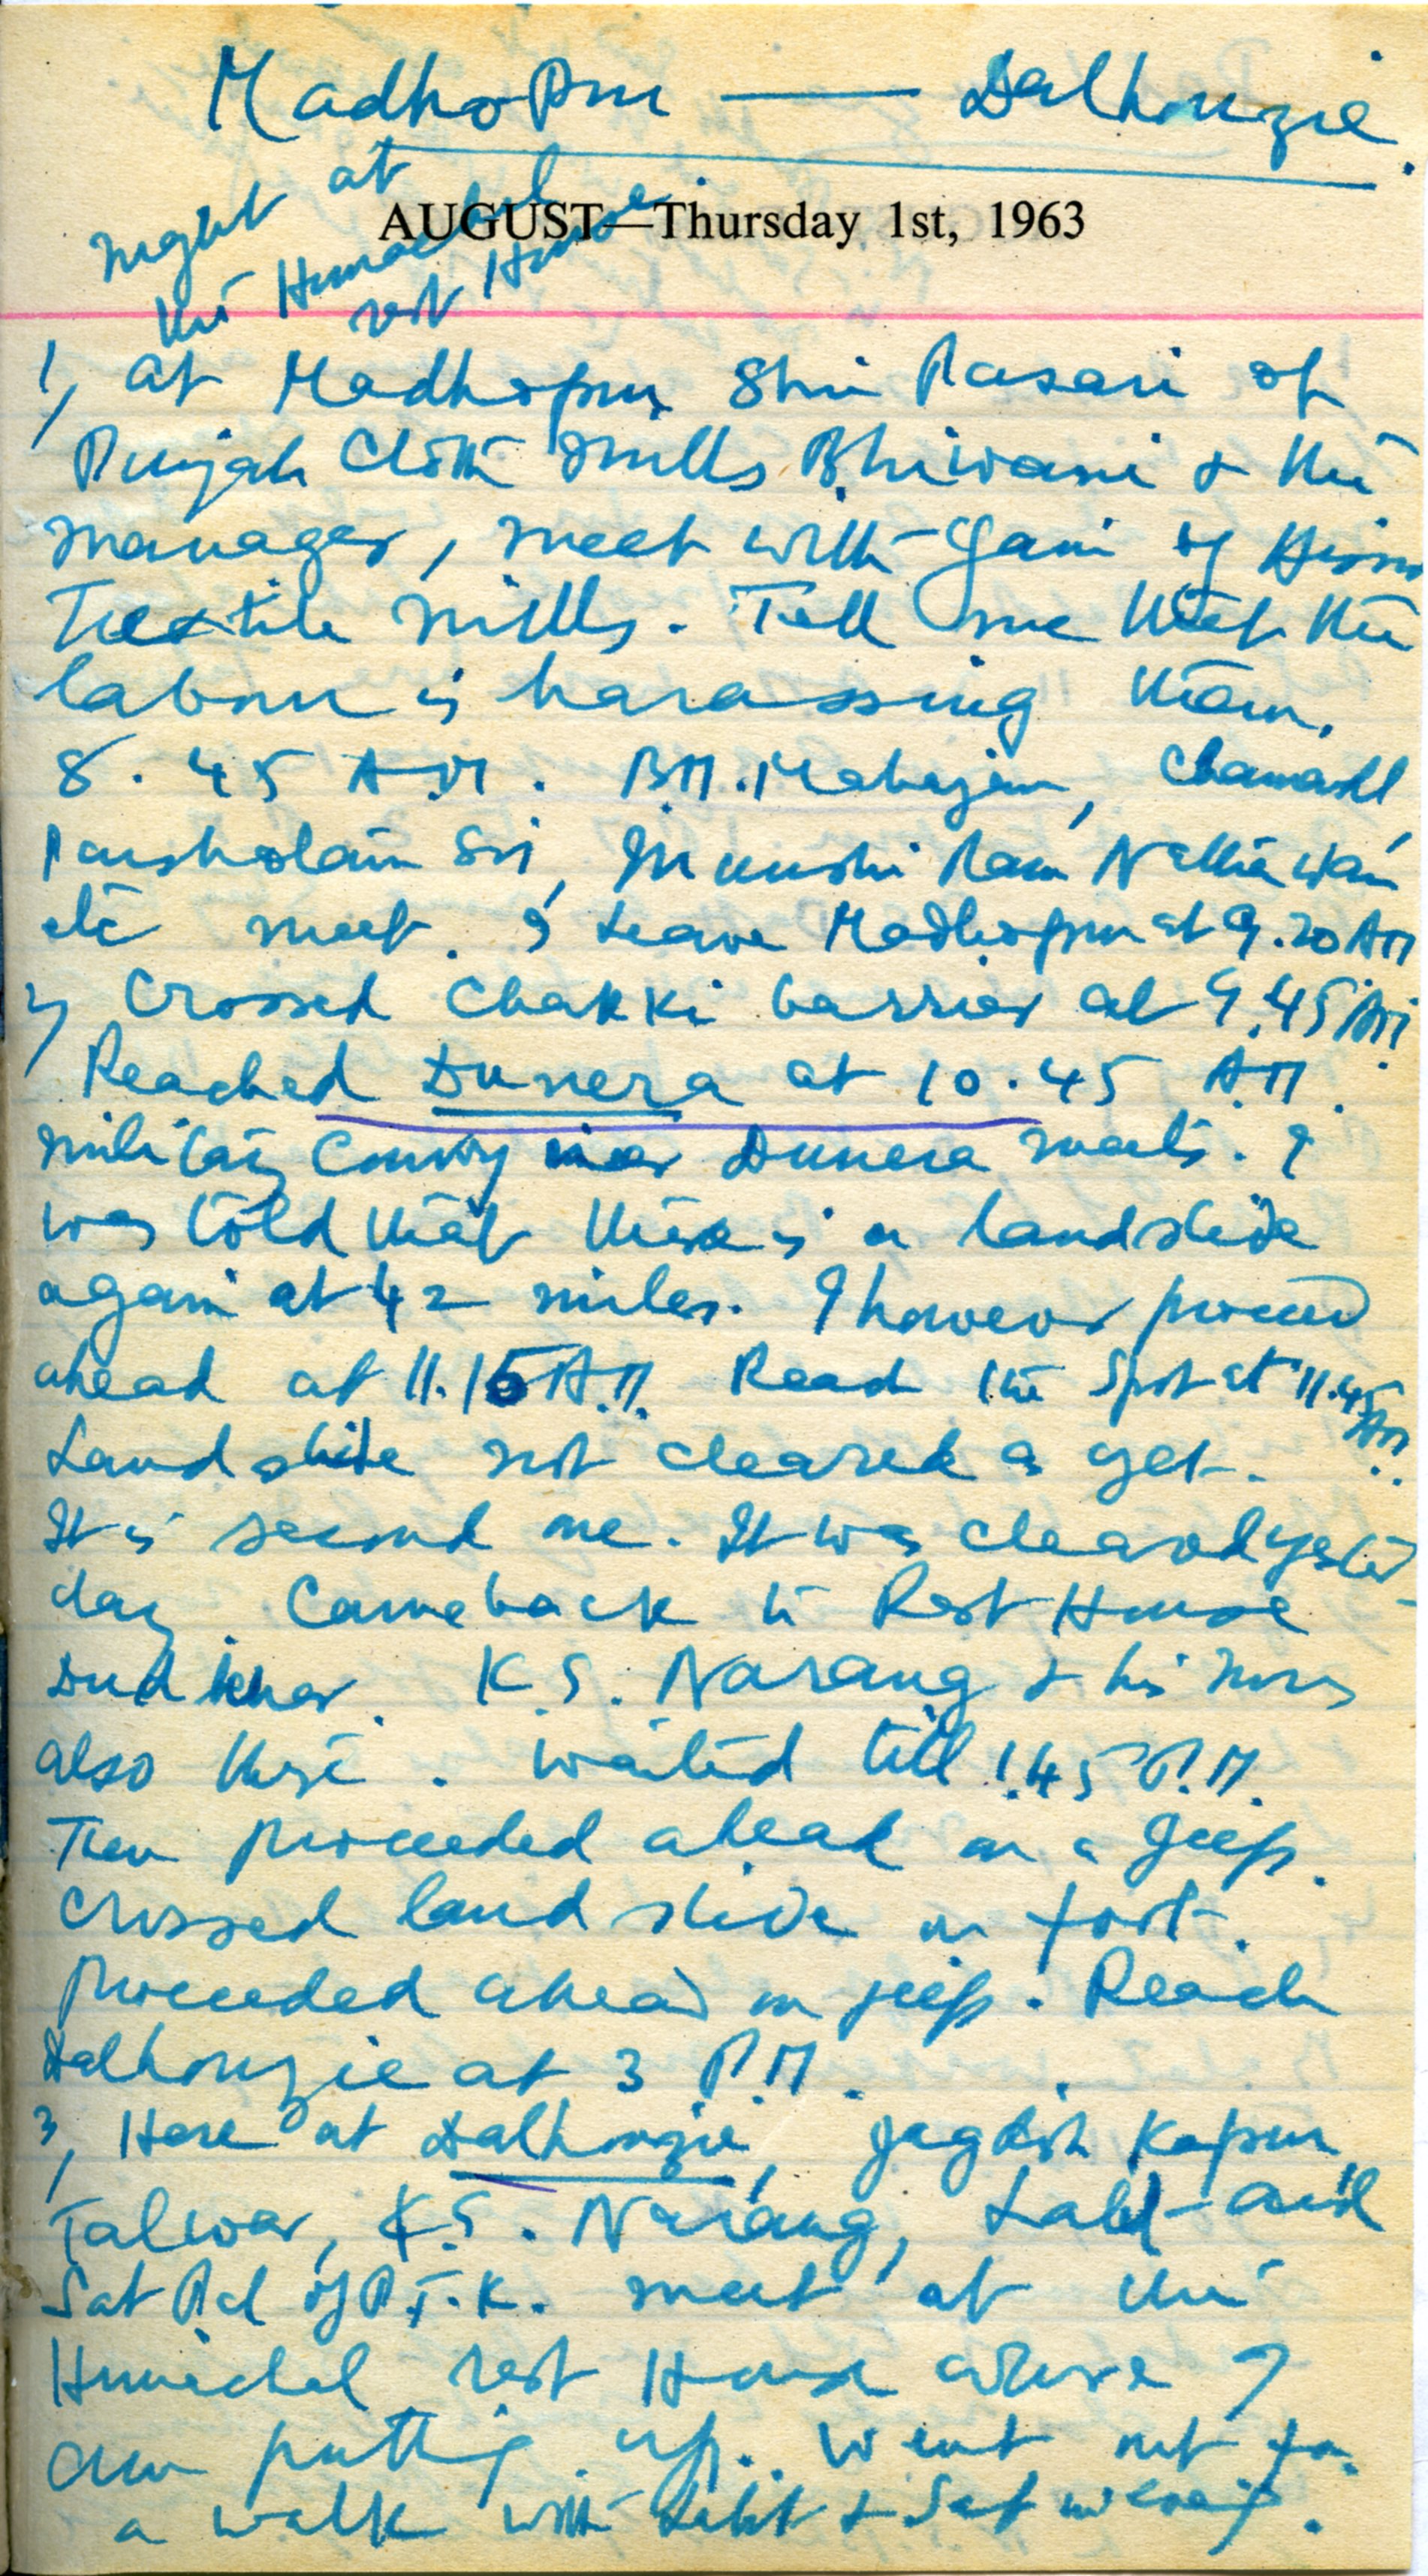 Madhopur — Dalhouzie.
Night at
the Himachal
rest House
AUGUST—Thursday 1st, 1963
1, at Madhopur Shri Pasari of
Punjab Cloth Mills Bhiwani & the
manager, meet with Jain of Hissar
Textile Mills. Tell me that the
labour is harassing them.
8.45 A.M. B.M. Mahajan, Chamanlal
Parshotam Sri, Munshi Ram
etc meet. I leave Madhopur at 9.20 AM
2, Crossed Chakki barrier at 9.45 AM.
Reached Dunera at 10.45 A.M.
military convoy near Dunera meets. I
was told that there is a landslide
again at 42 miles. I however proceed
ahead at 11.15 A.M. Reach the spot at 11.45 AM.
Landslide not cleared as yet.
It is second one. It was cleared yester-
day. Came back to Rest House
K.S. Narang & his
also there. Waited till 1.45 P.M.
Then proceeded ahead on a Jeep.
Crossed land slide on foot.
Proceeded ahead on jeep. Reach
Dalhouzie at 3 P.M.
3, Here at Dalhouzie, Jagdish Kapur
Talwar, K.S. Narang, Lalit and
Sat Pal of P.T.K. meet at the
Himachal rest House where I
am putting up. Went out for
a walk with Lalit & Sat in evening.